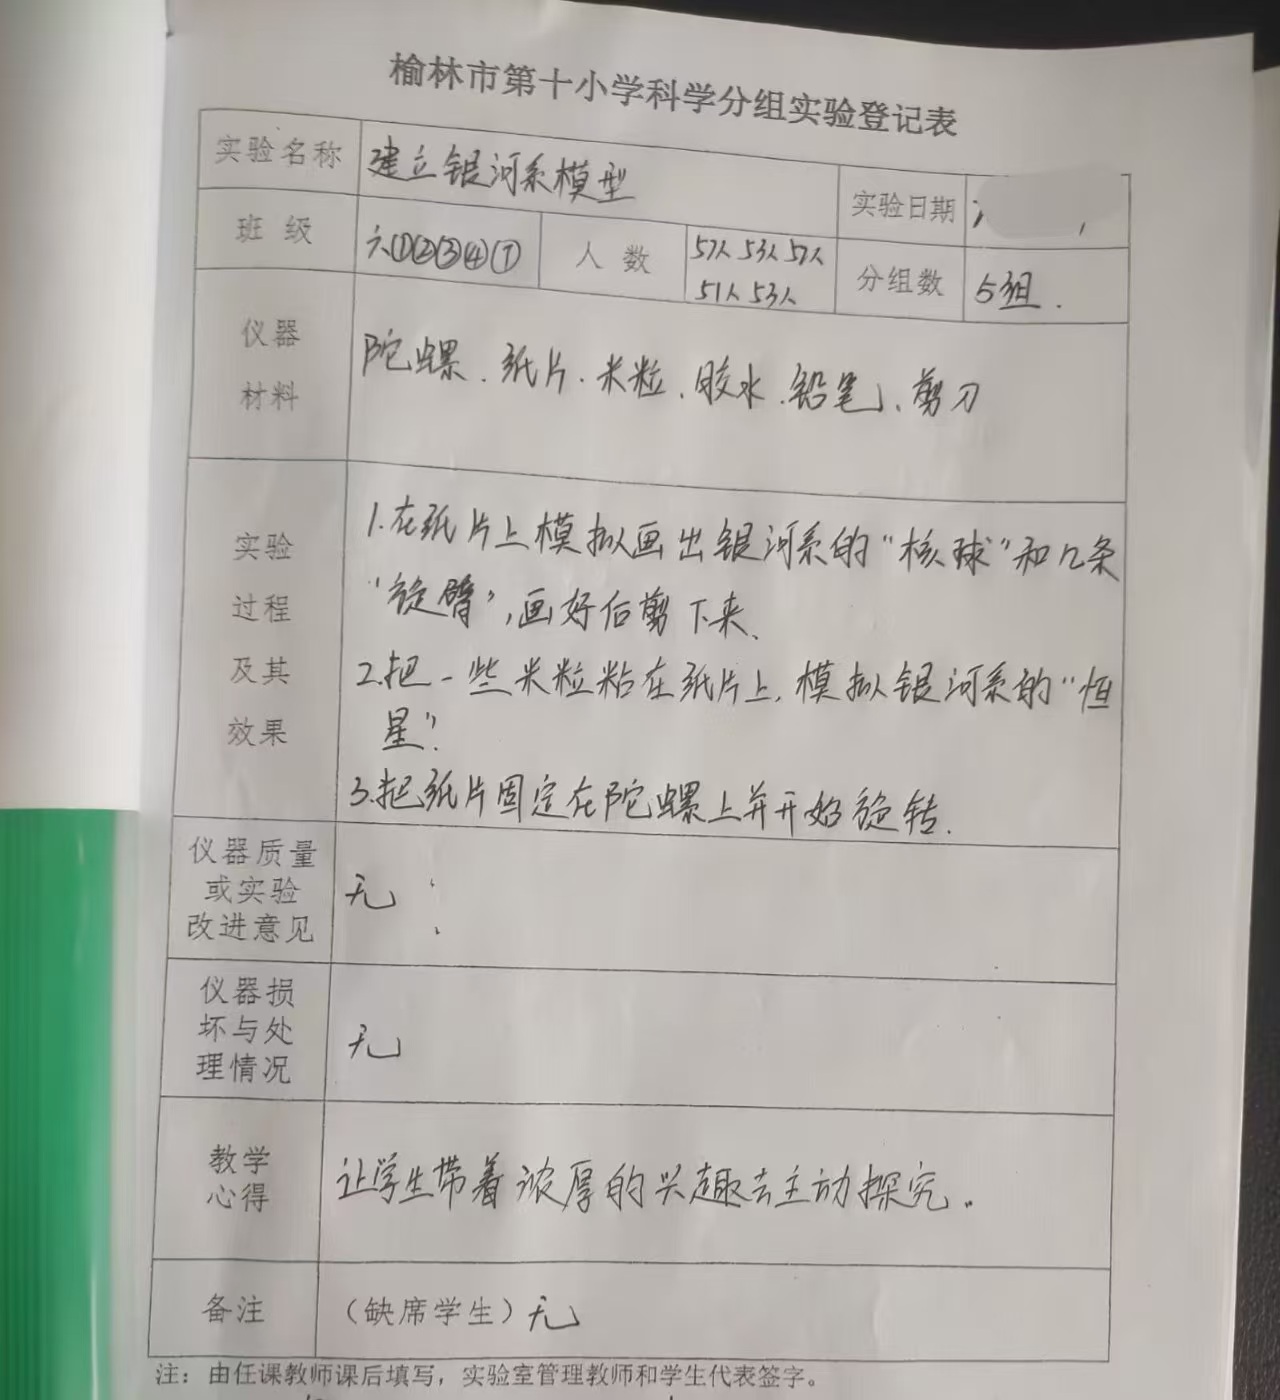 榆林市第十小学科学分组实验登记表
实验名称 建立银河系模型 实验日期
班级 六①②③④⑦ 人数 57人 53人 57人 分组数 5组.
51人 53人
仪器
材料
陀螺、纸片、米粒、胶水、铅笔、剪刀
实验
过程
及其
效果
1.在纸片上模拟画出银河系的“核球”和几条
“旋臂”,画好后剪下来、
2.把一些米粒粘在纸片上,模拟银河系的“恒
星”.
3.把纸片固定在陀螺上并开始旋转.
仪器质量
或实验
改进意见
无
仪器损
坏与处
理情况
无
教学
心得
让学生带着浓厚的兴趣去主动探究。
备注 （缺席学生）无
注：由任课教师课后填写，实验室管理教师和学生代表签字。